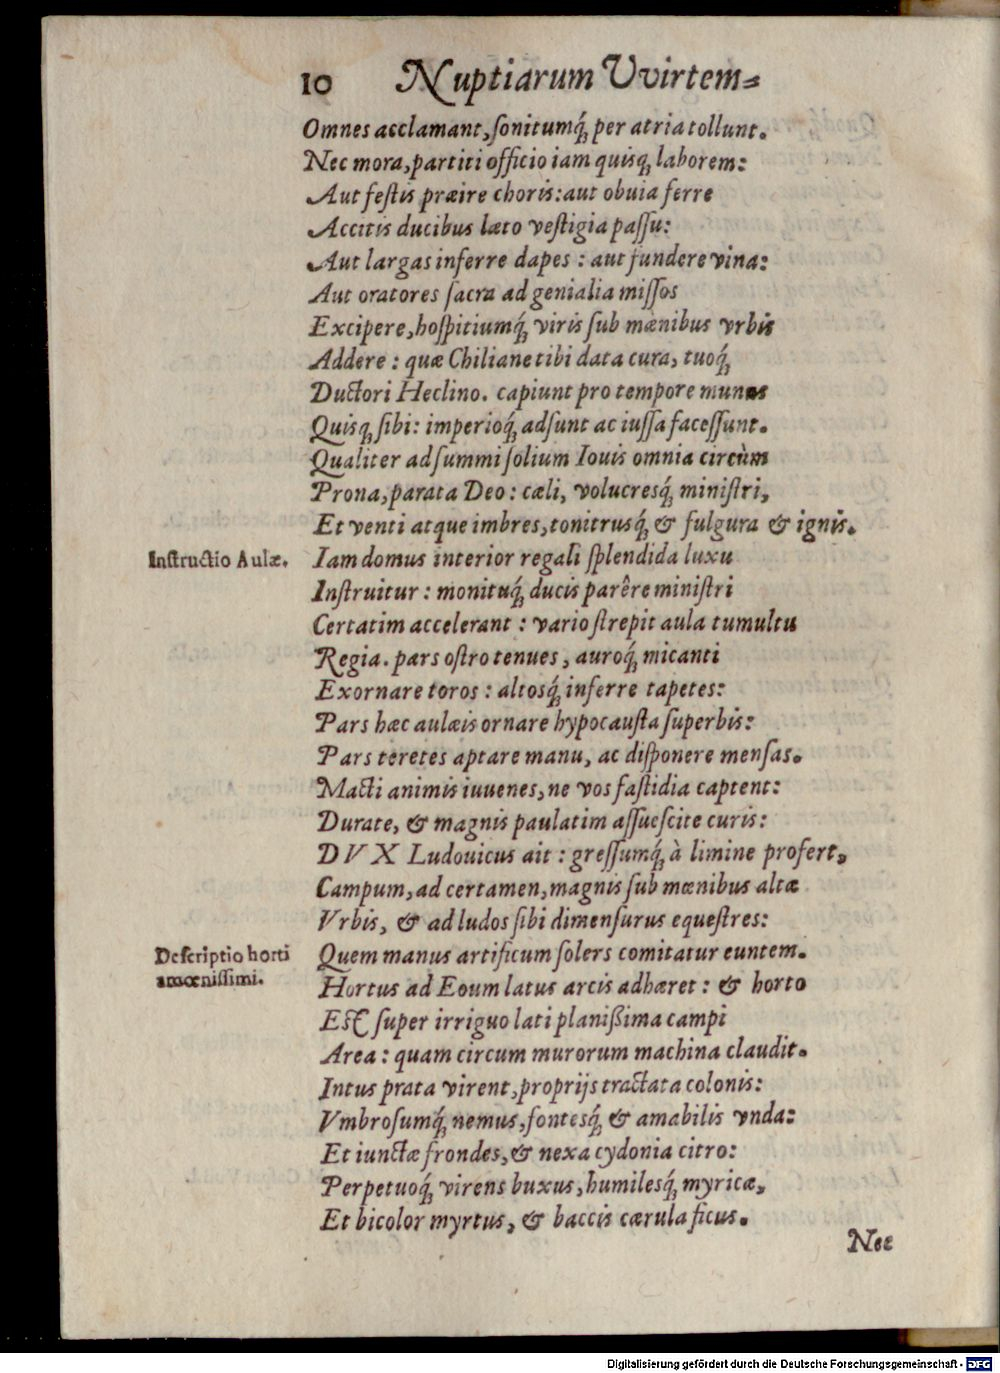 10 Nuptiarum Vvirtem=
Omnes acclamant, ſonitumq́; per atria tollunt.
Nec mora, partiti officio iam quisq; laborem:
Aut feſtis præire choris: aut obuia ferre
Accitis ducibus læto veſtigia paſſu:
Aut largas inferre dapes : aut fundere vina:
Aut oratores ſacra ad genialia miſſos
Excipere, hoſpitiumq́; viris ſub mœnibus vrbis
Addere : quæ Chiliane tibi data cura, tuoq́;
Ductori Heclino. capiunt pro tempore munus
Quisq; ſibi: imperioq́; adſunt ac iuſſa faceſſunt.
Qualiter ad ſummi ſolium Iouis omnia circùm
Prona, parata Deo : cæli, volucresq́; miniſtri,
Et venti atque imbres, tonitrusq́; & fulgura & ignis.
Inſtructio Aulæ. Iam domus interior regali ſplendida luxu
Inſtruitur : monituq́; ducis parêre miniſtri
Certatim accelerant : vario ſtrepit aula tumultu
Regia. pars oſtro tenues, auroq́; micanti
Exornare toros : altosq́; inferre tapetes:
Pars hæc aulæis ornare hypocauſta ſuperbis:
Pars teretes aptare manu, ac diſponere menſas.
Macti animis iuuenes, ne vos faſtidia captent:
Durate, & magnis paulatim aſſueſcite curis:
DVX Ludouicus ait : greſſumq́; à limine profert,
Campum, ad certamen, magnis ſub mœnibus altæ
Vrbis, & ad ludos ſibi dimenſurus equeſtres:
Deſcriptio horti Quem manus artificum ſolers comitatur euntem.
amœniſſimi. Hortus ad Eoum latus arcis adhæret : & horto
Eſt ſuper irriguo lati planißima campi
Area : quam circum murorum machina claudit.
Intus prata virent, proprijs tractata colonis:
Vmbroſumq́; nemus, fontesq́; & amabilis vnda:
Et iunctæ frondes, & nexa cydonia citro:
Perpetuoq́; virens buxus, humilesq́; myricæ,
Et bicolor myrtus, & baccis cærula ficus.
Nec
Digitalisierung gefördert durch die Deutsche Forschungsgemeinschaft - DFG